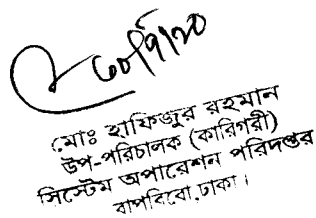 মোঃ হাফিজুর রহমান
উপ-পরিচালক (কারিগরী)
সিস্টেম অপারেশন পরিদপ্তর
বাপবিবো, ঢাকা।